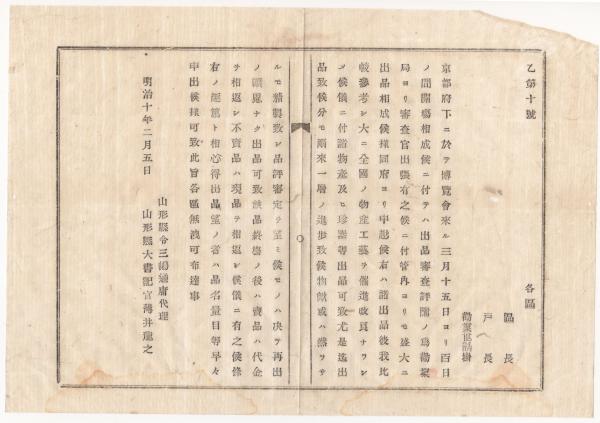 乙第十號
各區
區長
戸長
勸業世話掛
京都府下ニ於テ博覽會來ル三月十五日ヨリ百日
ノ間開塲相成候ニ付テハ出品審査評閲ノ爲勸業
局ヨリ審査官出張有之候ニ付管内ヨリモ盛大ニ
出品相成候様同府ヨリ申越候右ハ諸出品彼我比
較參考シ大ニ全國ノ物産工藝ヲ催進改良ナラシ
メ候儀ニ付諸物產及ヒ珍器等出品可致尤是迄出
品致候分モ爾來一層ノ進歩致候物歟或ハ然ラサ
ルモ精製致シ品評審定ヲ望ミ候モノハ決テ再出
ノ顧慮ナク出品可致該品終塲ノ後ハ賣品ハ代金
ヲ相返シ不賣品ハ現品ヲ相返シ候儀ニ有之候條
右ノ趣篤ト相心得出品望ノ者ハ品名量目等早々
申出候様可致此旨各區無洩可布達事
山形縣令三島通庸代理
明治十年二月五日
山形縣大書記官薄井龍之